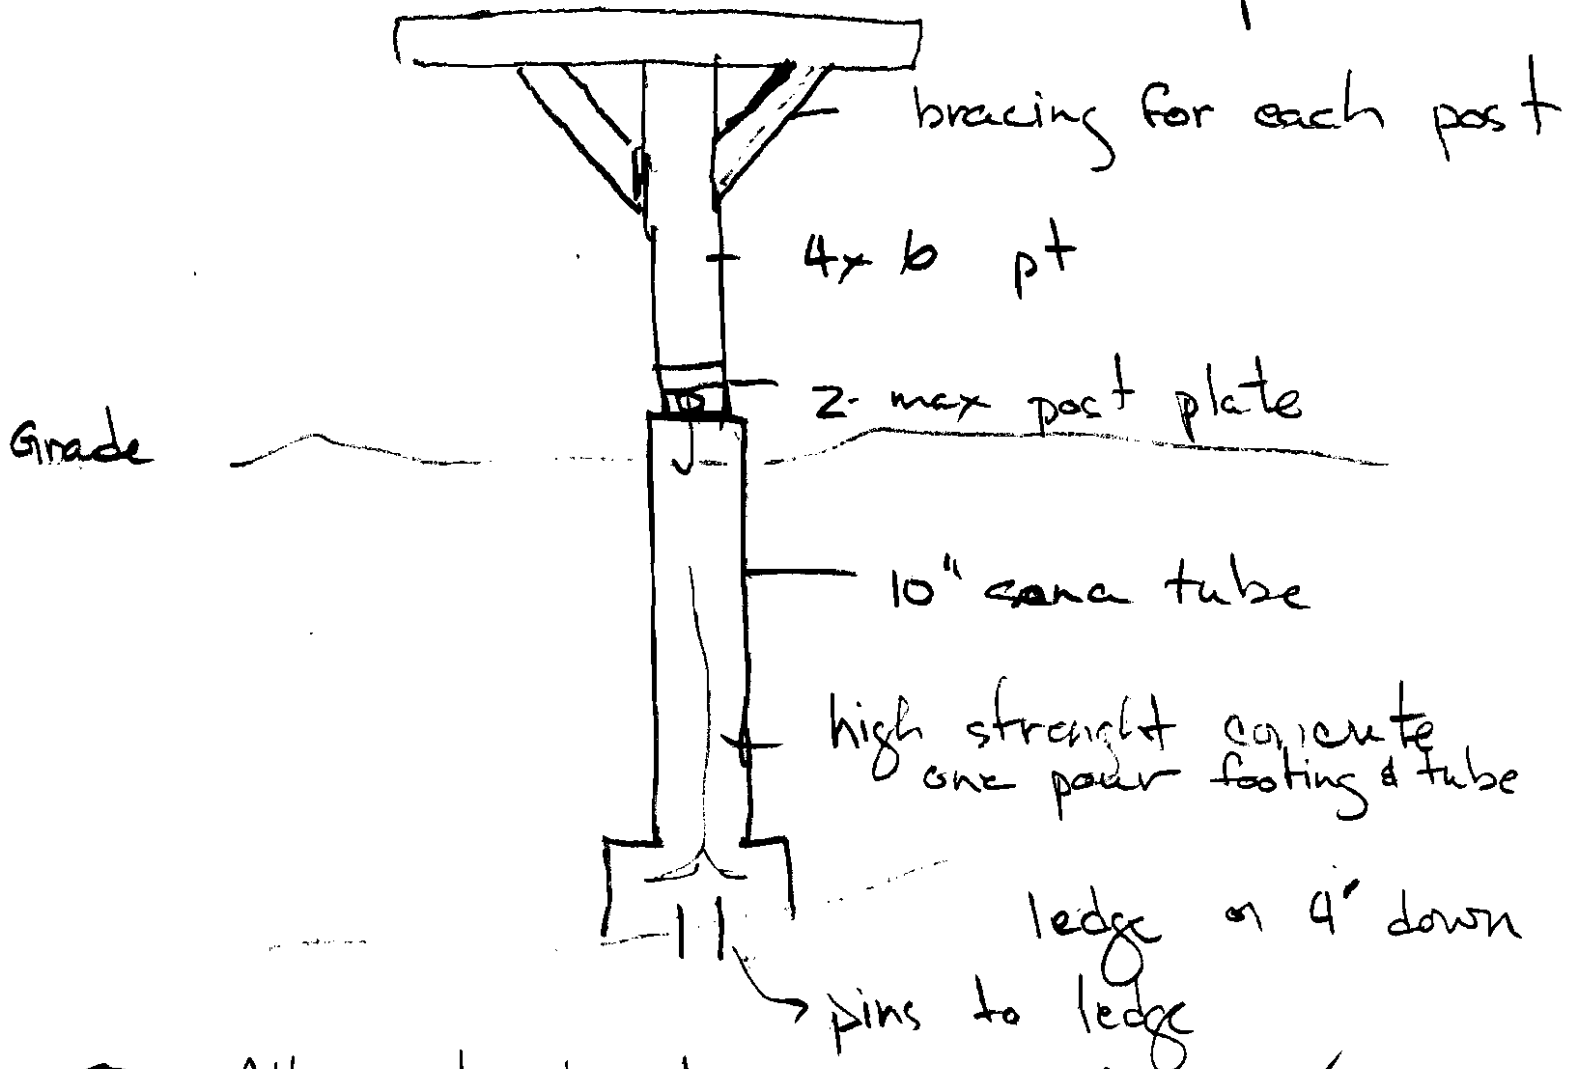 bracing for each post
4x6 pt
2-max post plate
Grade
10" sona tube
high strenght concrete
one pour footing & tube
ledge or 4' down
pins to ledge